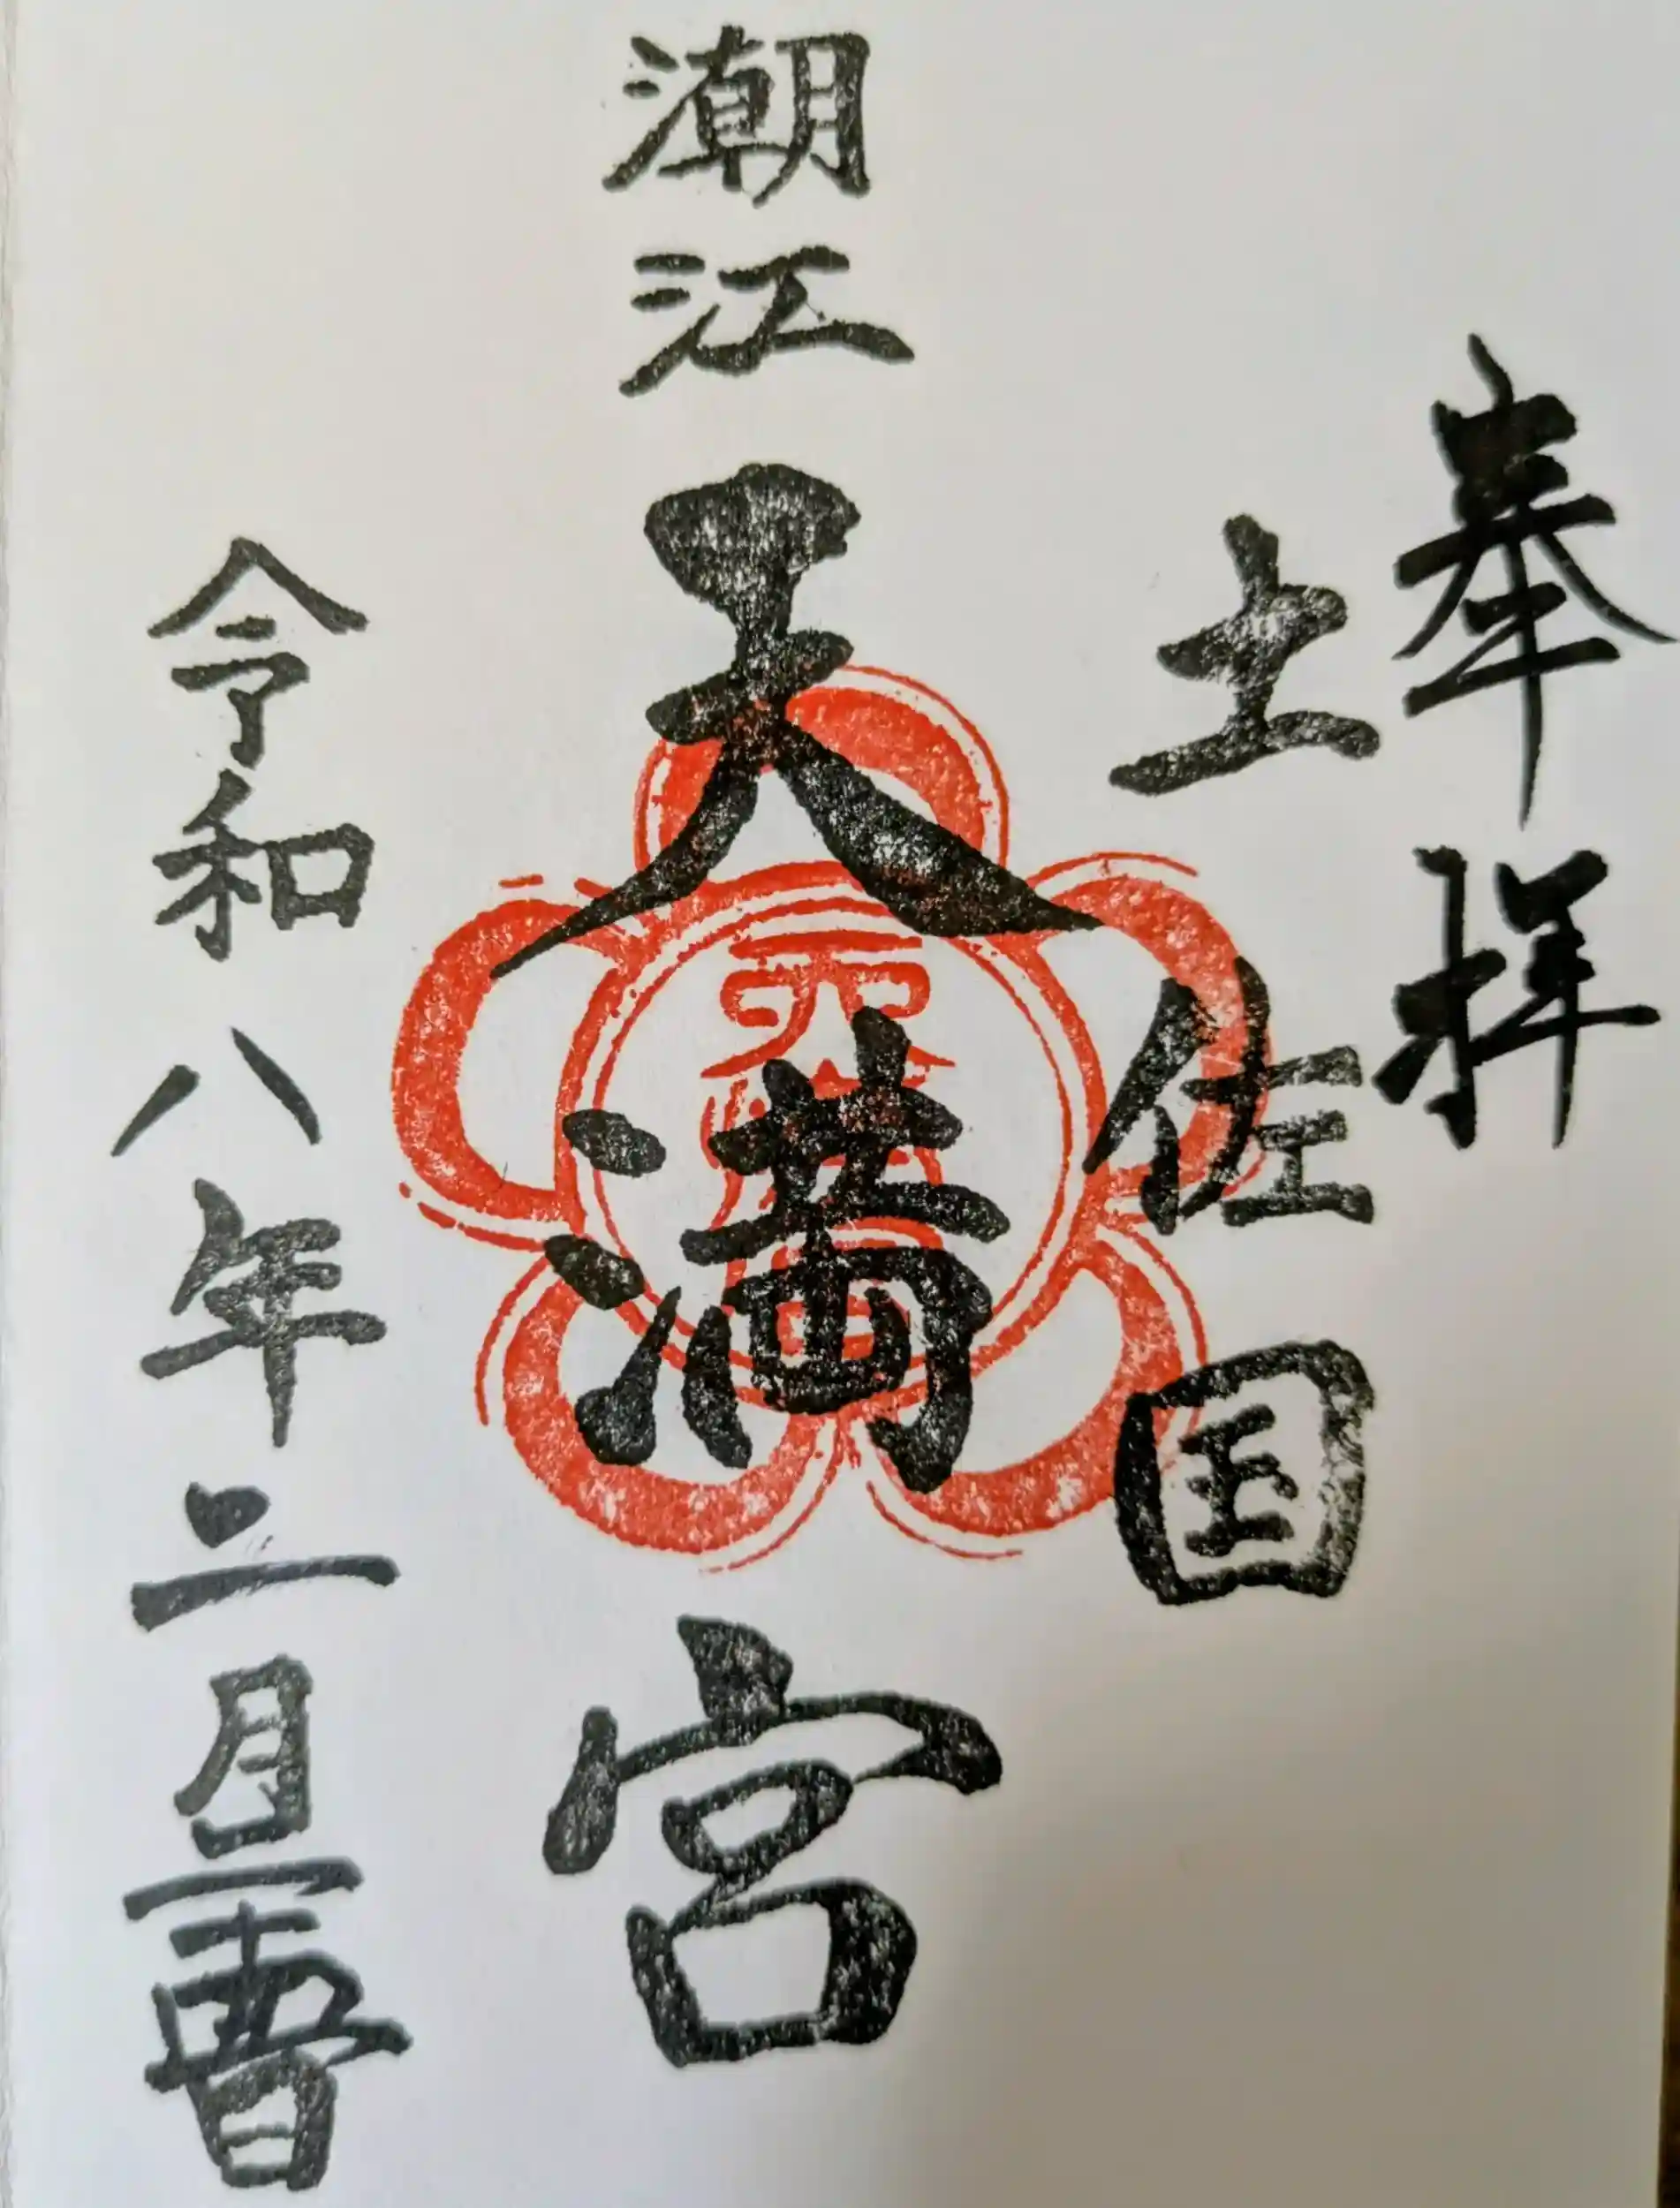 奉拝
土佐国
潮江天満宮
令和八年二月二十五日